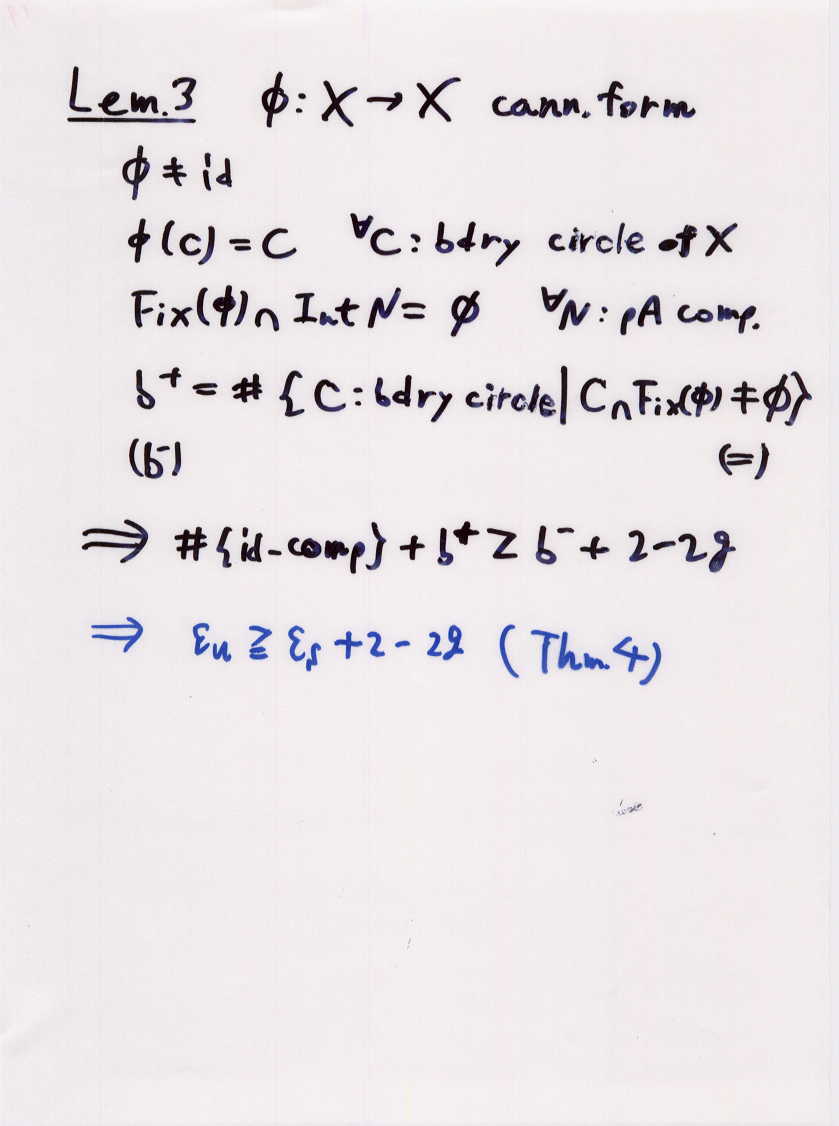 Lem.3 φ: X → X cann. form
φ ≠ id
φ(c) = C ∀C: bdry circle of X
Fix(φ) ∩ Int N = ∅ ∀N: pA comp.
b⁺ = # {C: bdry circle | C ∩ Fix(φ) ≠ ∅}
(b⁻) (=)
⇒ #{id-comp} + b⁺ ≥ b⁻ + 2 - 2g
⇒ εu ≧ εs + 2 - 2g (Thm. 4)